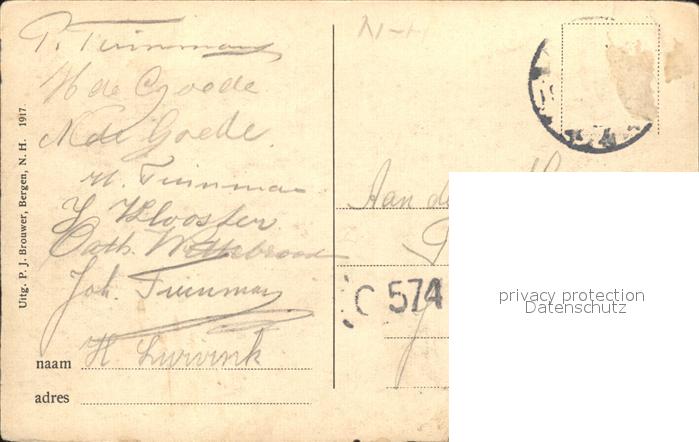 N-H
P. Tuinman
H de Goede
N de Goede.
M. Tuinman
J Klooster
Cath. Wittebrood
Joh. Tuinman
naam H Lurvink
adres
Uitg. P. J. Brouwer, Bergen, N. H. 1917
Aan de
C 574
privacy protection
Datenschutz